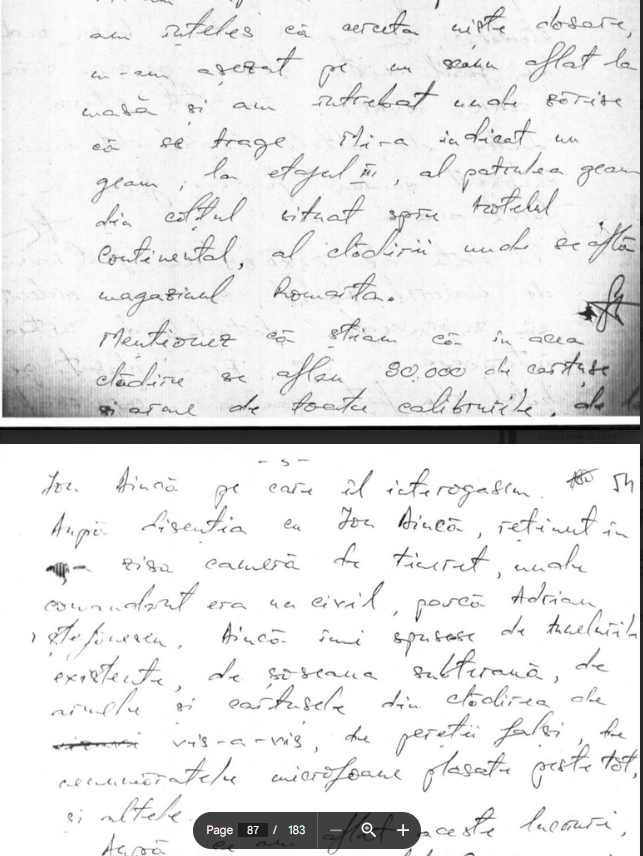 am înțeles că cerceta niște dosare,
m-am așezat pe un scaun aflat la
masă și am întrebat unde
că se trage Mi-a indicat un
geam, la etajul III, al patrulea geam
din colțul situat spre Hotelul
Continental, al clădirii unde se află
magasinul Romarta.
Menționez că știam că în acea
clădire se aflau 80.000 de cartușe
și arme de toate calibrurile, de l
- 5 -
Ion Dincă pe care îl interogasem. 54
După discuția cu Ion Dincă, reținut în
zisa cameră de tineret, unde
comandant era un civil, parcă Adrian
Ștefănescu, Dincă îmi spusese de tunelurile
existente, de șoseaua subterană, de
armele și cartușele din clădirea de
vis-a-vis, de pereții falși, de
nenumăratele microfoane plasate peste tot,
și altele.
După ce am aflat aceste lucruri,
Page 87 / 183